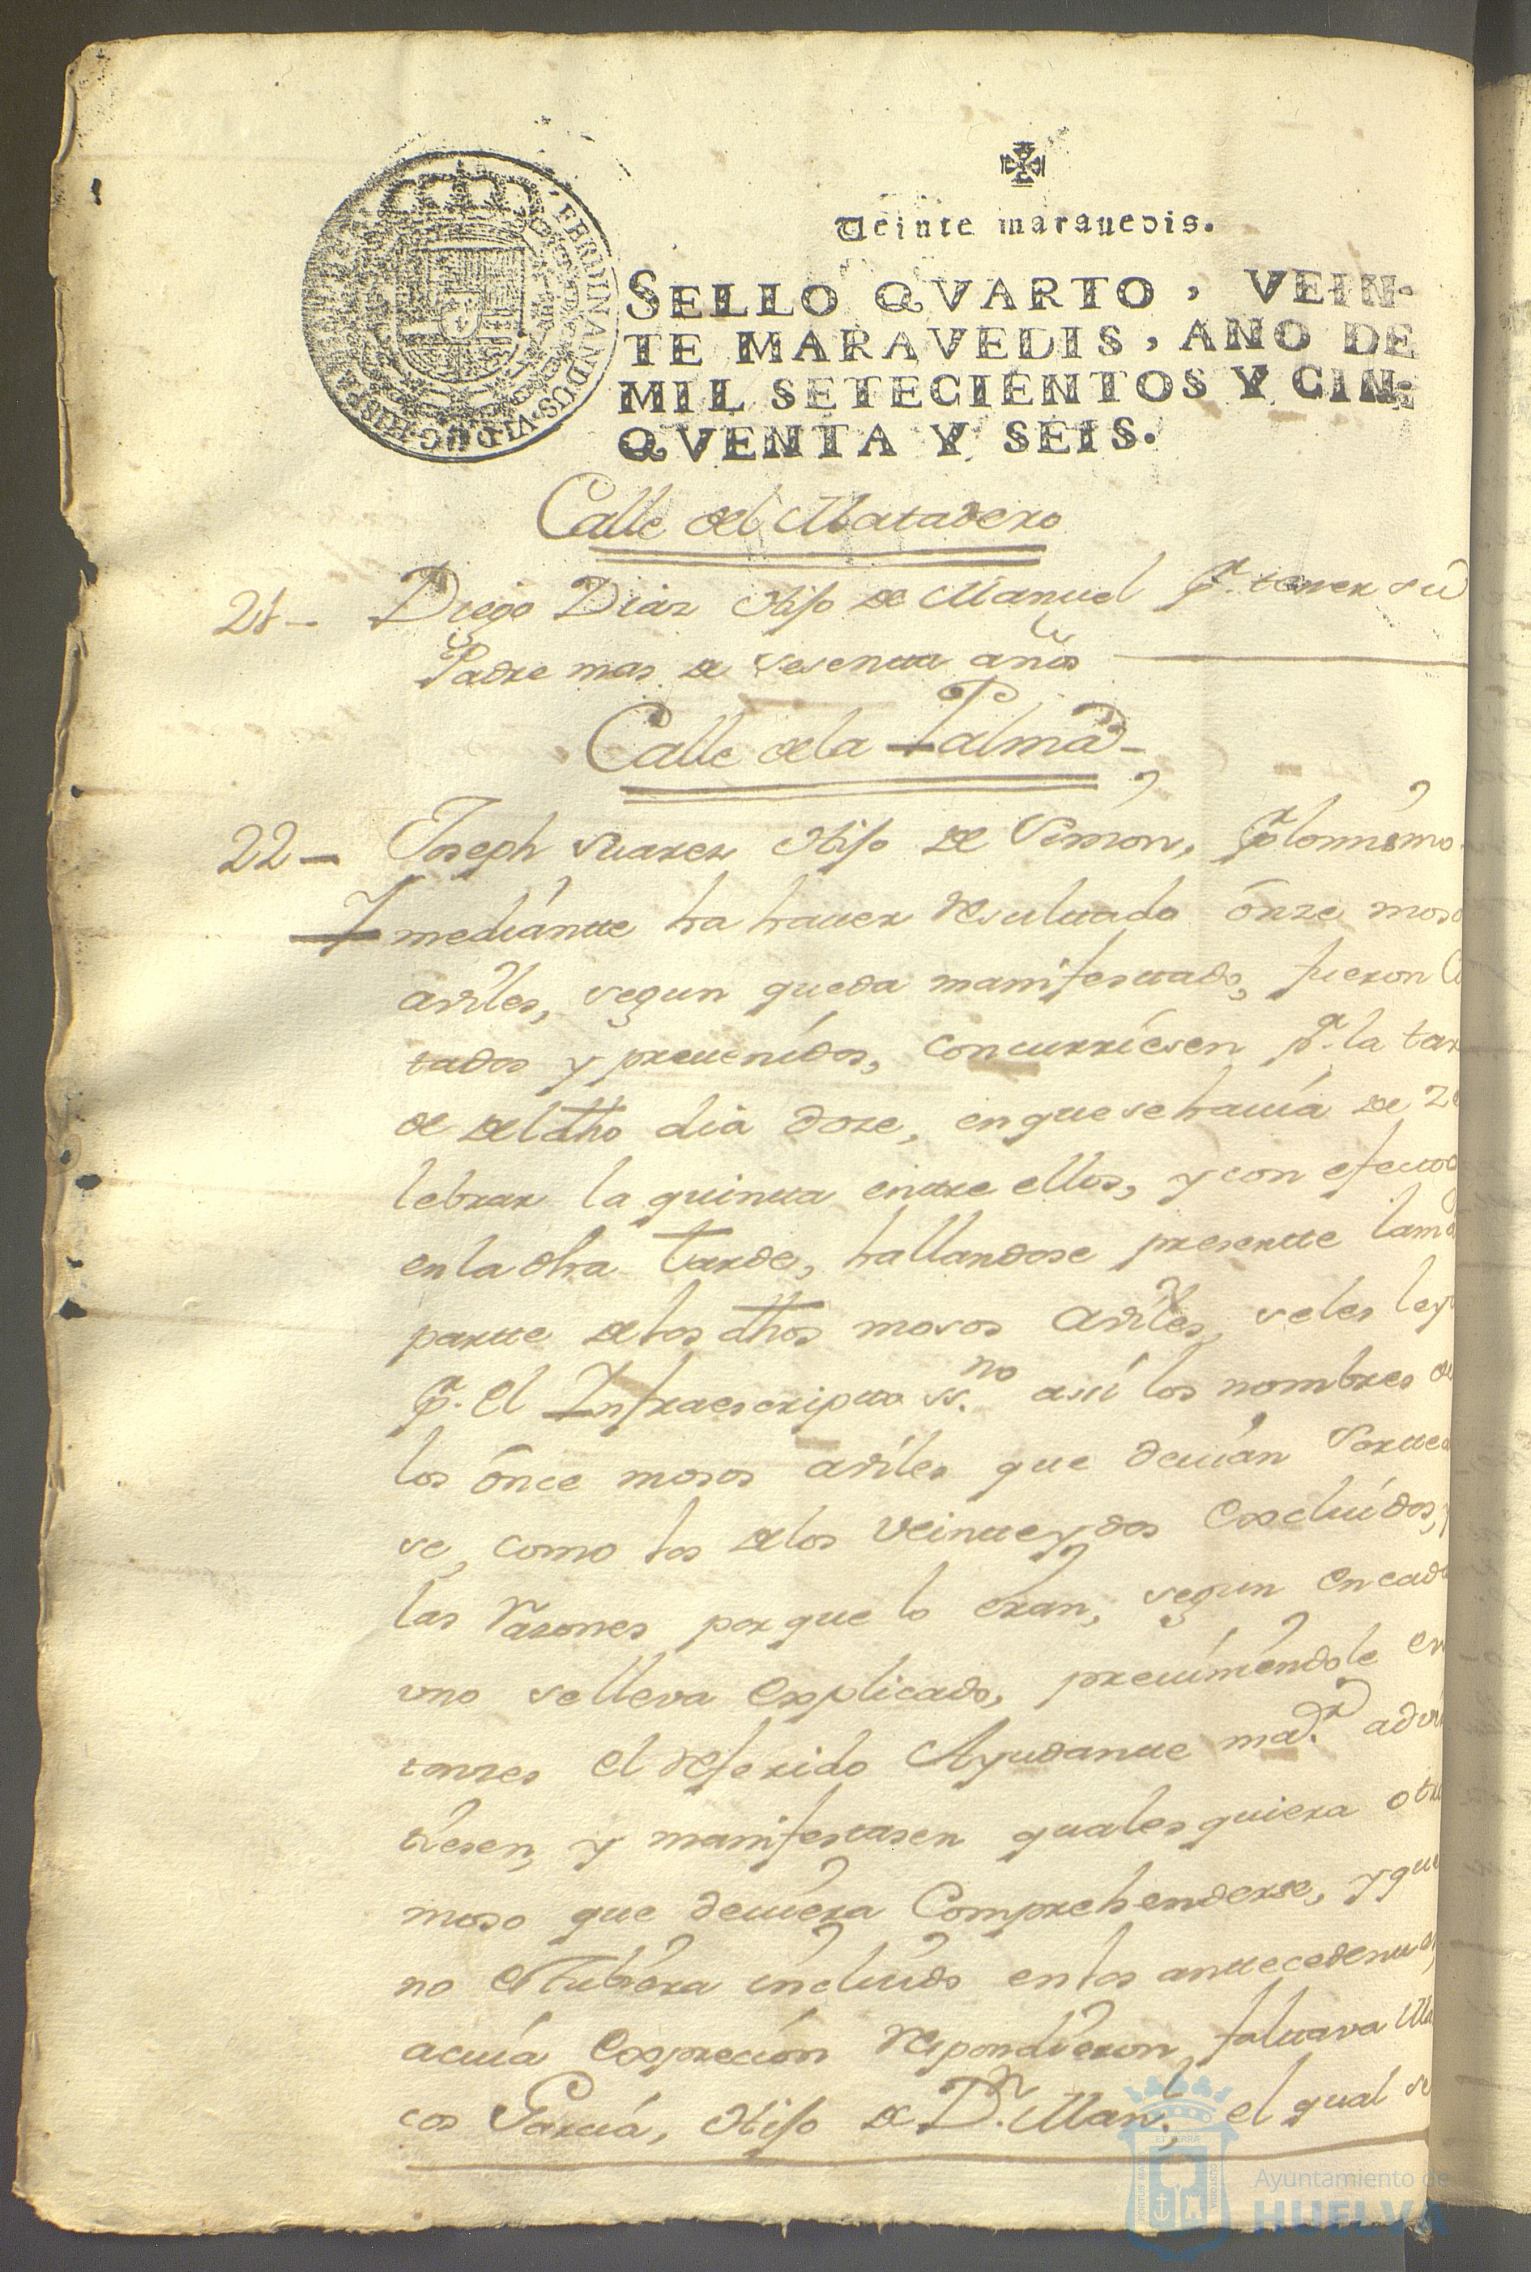 Veinte marauedis.
SELLO QVARTO, VEIN-
TE MARAVEDIS, AÑO DE
MIL SETECIENTOS Y CIN-
QVENTA Y SEIS.
FERDINANDUS·VI·D·G·HISPA
Calle del Matadero
21– Diego Diaz Hijo de Manuel pr. tener su
Padre mas de sesenta años
Calle de la Palma–
22– Joseph Suarez Hijo de Simon, pr lo mismo
Y mediánte ha hauer resultado ónze moso
aviles, segun queda manifestado, fueron Ci
tados y preuenidos, concurriesen pr. la tar
de del dho dia doze, en que se hauía de ze
lebrar la quinta entre ellos, y con efecto
en la dha tarde, hallandose presente la ma
parte de los dhos mosos aviles, se les leyo
pr. el Infraescripto ss.no assi los nombres de
los ónce mosos aviles que deuían Sortear
se, como los de los veinte y dos excluídos, y
las razones por que lo eran, segun en cada
uno se lleva explicado, preuiniéndole en
tonzes el referido Ayudante mar. advir
tiesen, y manifestasen quales quiera otro
moso que deuiera Comprehenderse, y que
no estubiera incluido en los antecedentes,
a cuia expreción respondieron faltava Mar
cos Garcia, Hijo de Dn. Manl., el qual se
Ayuntamiento de
HUELVA